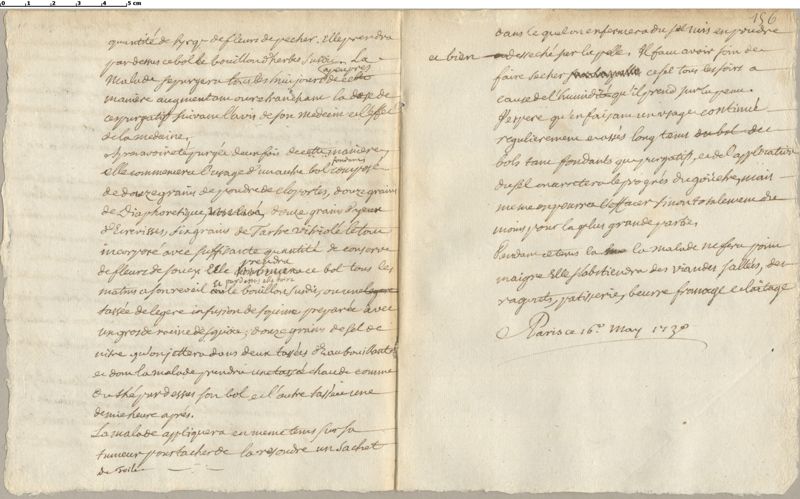 quantité de syrop de fleurs de pecher. Elle prendra
par dessus ce bol le bouillon d'herbe susdit. La
Malade se purgera tous les huit jours de cette
a peu pres
maniere augmentant ou retranchant la dose de
ce purgatif suivant l'avis de son medecin et l'effet
de la medecine.
Apres avoir eté purgée deux fois de cette maniere
elle commencera l'usage d'un autre bol composé
fondant
de douze grains de poudre de cloportes, douze grains
de Diaphoretique, douze grains d'yeux
d'Ecrevisses, six grains de Tartre vitriolé le tout
incorporé avec suffisante quantité de conserve
de fleurs de soucy. Elle prendra ce bol tous les
matins a son reveil et par dessus elle boira
le bouillon susdit, ou une
tassée de legere infusion de squine preparée avec
un gros de racine de squine, douze grains de sel de
nitre qu'on jettera dans deux tassées d'eau bouillante
et dont la malade prendra une tassée chaude comme
du thé par dessus son bol et l'autre tassée une
demie heure aprés.
La malade appliquera en meme tems sur sa
tumeur pour tacher de la resoudre un sachet
de toile
156
dans lequel on enfermera du sel mis en poudre
et bien desseché sur la pelle. Il faut avoir soin de
faire secher ce sel tous les soirs a
cause de l'humidité qu'il prend sur la peau.
J'espere qu'en faisant un usage continué
regulierement et assés long tems du bol de
bols tant fondants que purgatifs, et de l'application
du sel on arretera le progrés du goëtre, mais
meme on pourra l'effacer sinon totalement du
moins pour la plus grande partie.
Pendant ce tems la la malade ne fera point
maigre. Elle s'abstiendra des viandes sallées, des
ragouts, patisserie, beurre fromage et laitage
A Paris ce 16e May 1730